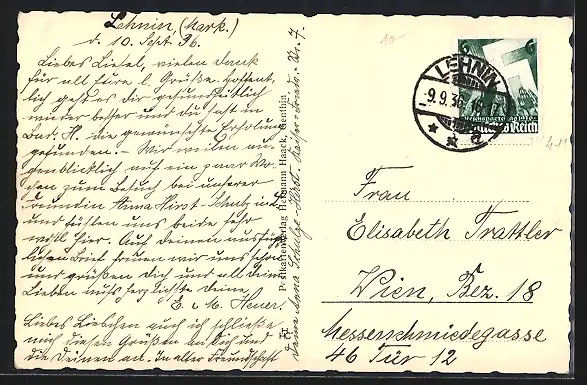 Lehnin, (Mark.)
d. 10. Sept. 36.
Liebes Liesel, vielen Dank
für all Eure l. Grüsse. Hoffent-
lig geht es dir gesundheitlich
wieder besser und du hast in
Bad. H. die gewünschte Erholung
gefunden. - Wir weilen au-
genblicklich auf ein paar Wo-
chen zum Besuch bei unserer
Freundin Anna Hirst-Schulz, in
und fühlen uns beide sehr
wohl hier. Auf deinen ausführ-
lichen Brief freuen wir uns schon
und grüßen dich und all deine
Lieben aufs herzlichste deine
E. u. M. Heuer.
Liebes Liebchen auch ich schließe
mich diesen Grüßen an Dich und
die Deinen an. In alter Freundschaft
deine Anna Schulze-Hirst.
Postkartenverlag Hermann Haack, Genthin
19-
LEHNIN
9.9.36
a
6
Reichsparteitag 1936
Deutsches Reich
Frau
Elisabeth Trattler
Wien, Bez. 18
Messerschmiedegasse
46 Tür 12